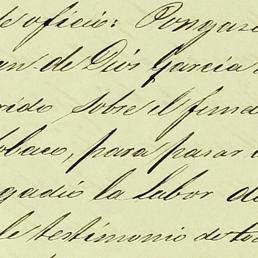 de oficio: Pongase
an de Dios Garcia
rido sobre el fundo
obaco, para pasar
gadio la Labor de
le testimonio de to